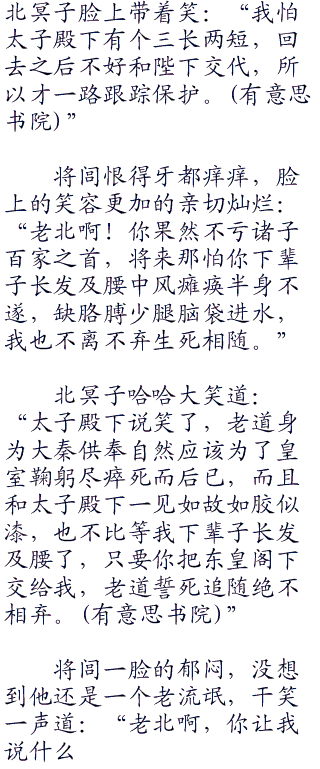 北冥子脸上带着笑：“我怕
太子殿下有个三长两短，回
去之后不好和陛下交代，所
以才一路跟踪保护。(有意思
书院)”
将闾恨得牙都痒痒，脸
上的笑容更加的亲切灿烂：
“老北啊！你果然不亏诸子
百家之首，将来那怕你下辈
子长发及腰中风瘫痪半身不
遂，缺胳膊少腿脑袋进水，
我也不离不弃生死相随。”
北冥子哈哈大笑道：
“太子殿下说笑了，老道身
为大秦供奉自然应该为了皇
室鞠躬尽瘁死而后已，而且
和太子殿下一见如故如胶似
漆，也不比等我下辈子长发
及腰了，只要你把东皇阁下
交给我，老道誓死追随绝不
相弃。(有意思书院)”
将闾一脸的郁闷，没想
到他还是一个老流氓，干笑
一声道：“老北啊，你让我
说什么